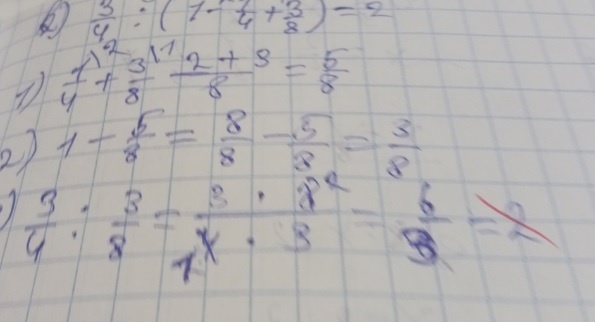 2) 3/4 : (1 - 1/4 + 3/8) = 2
1) 1/4 \2 + 3/8 \1 (2 + 3)/8 = 5/8
2) 1 - 5/8 = 8/8 - 5/8 = 3/8
) 3/4 : 3/8 = (3 · 8 2)/(1 4 · 3) = 6/3 = 2